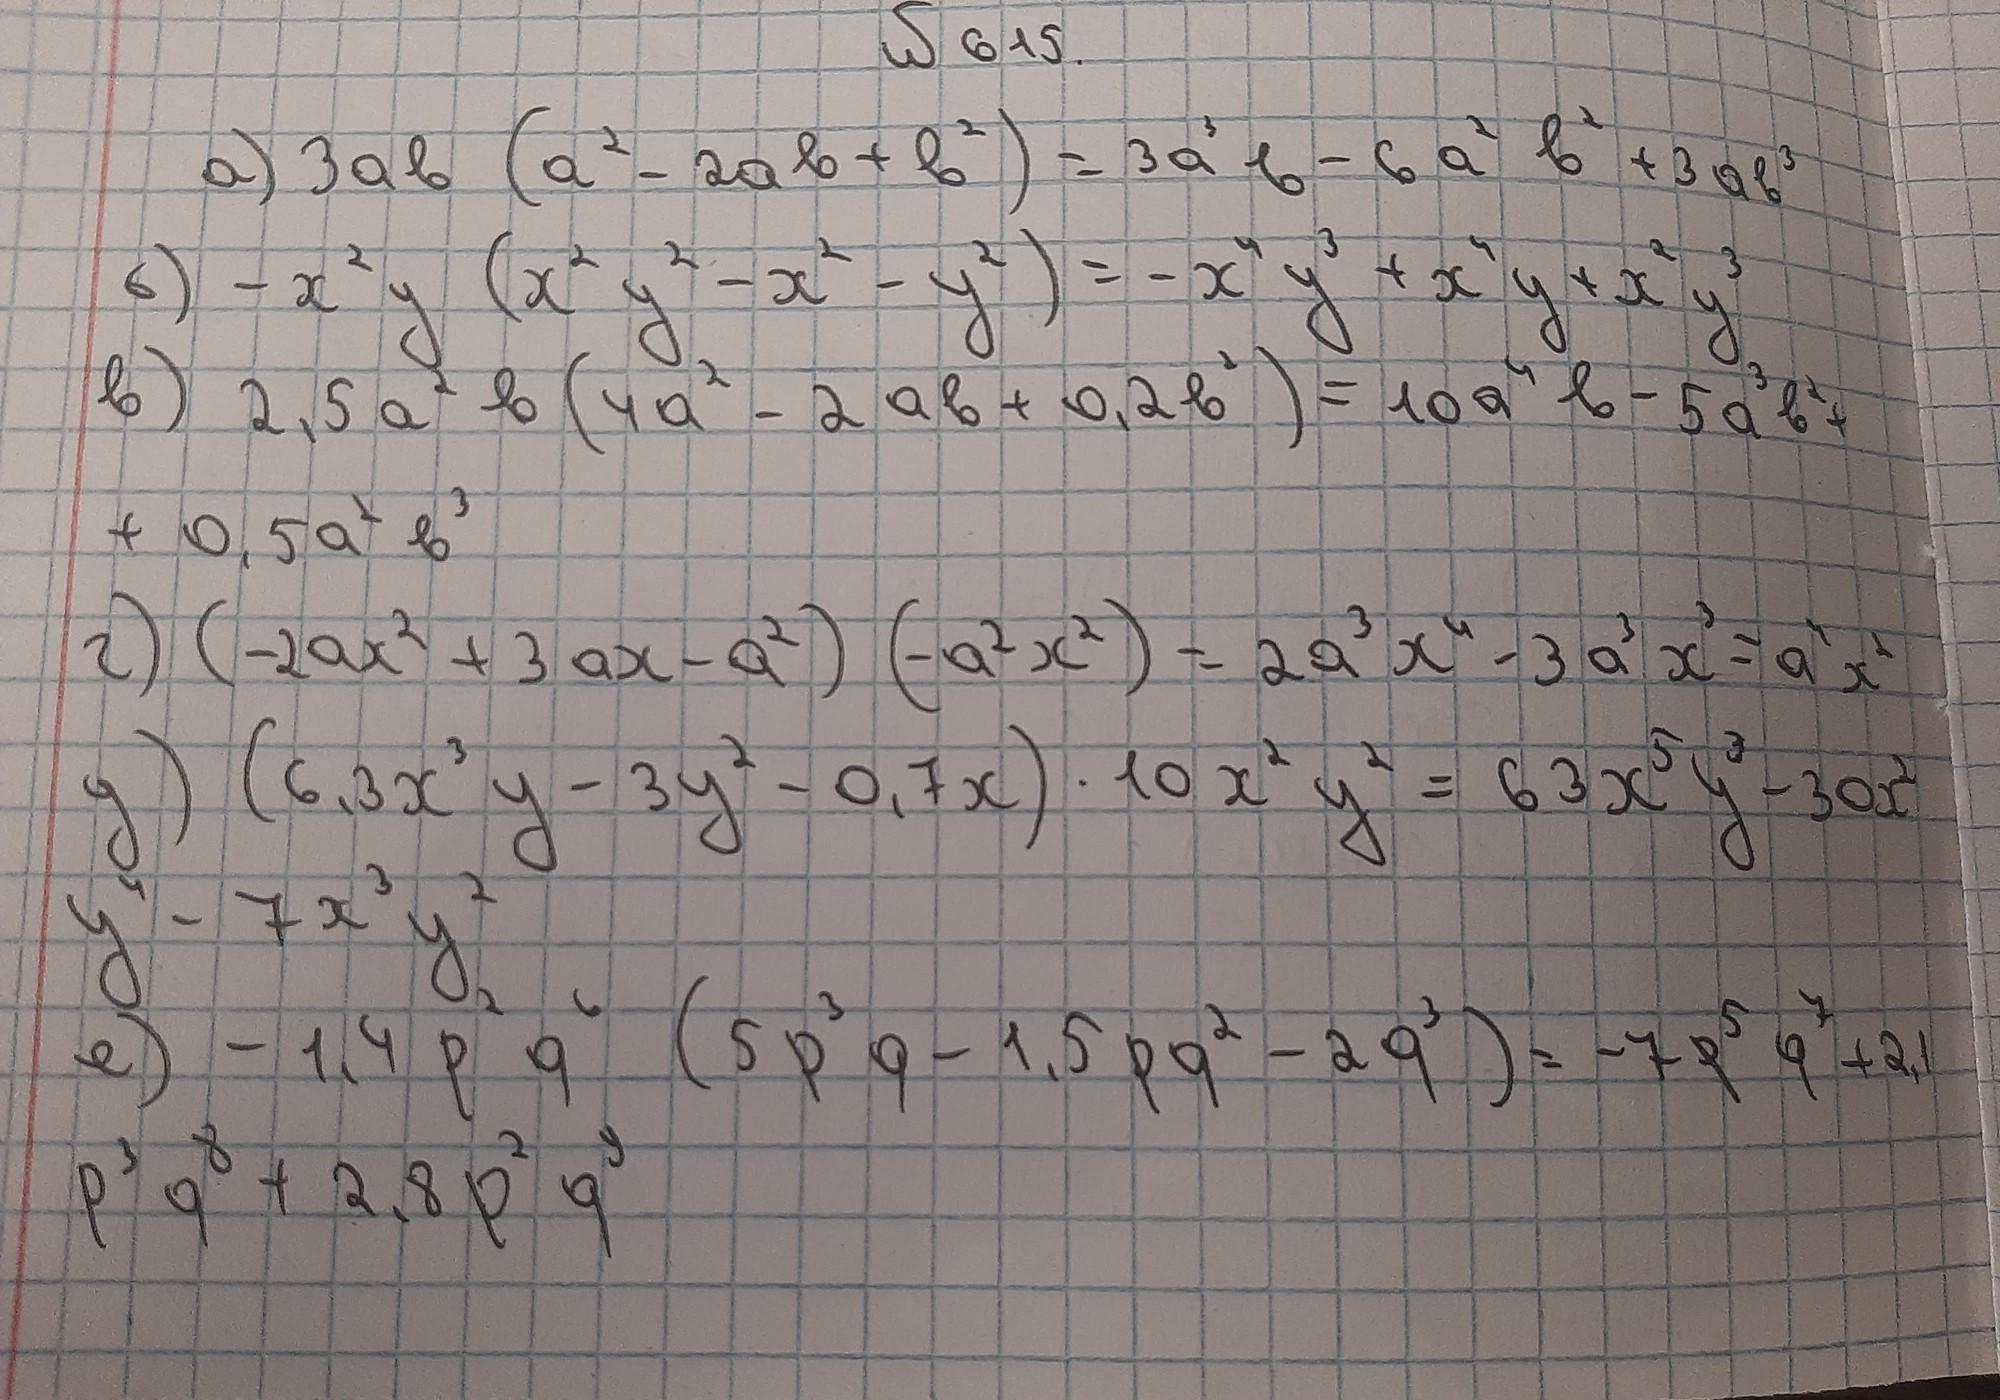 № 615.
а) 3ab (a² - 2ab + b²) = 3a³b - 6a²b² + 3ab³
б) -x²y (x²y² - x² - y²) = -x⁴y³ + x⁴y + x²y³
в) 2,5a²b (4a² - 2ab + 0,2b²) = 10a⁴b - 5a³b² +
+ 0,5a²b³
г) (-2ax² + 3ax - a²) (-a²x²) = 2a³x⁴ - 3a³x³ = a⁴x²
д) (6,3x³y - 3y² - 0,7x) · 10x²y² = 63x⁵y³ - 30x²
y⁴ - 7x³y²
е) -1,4p²q⁶ (5p³q - 1,5pq² - 2q³) = -7p⁵q⁷ + 2,1
p³q⁸ + 2,8p²q⁹